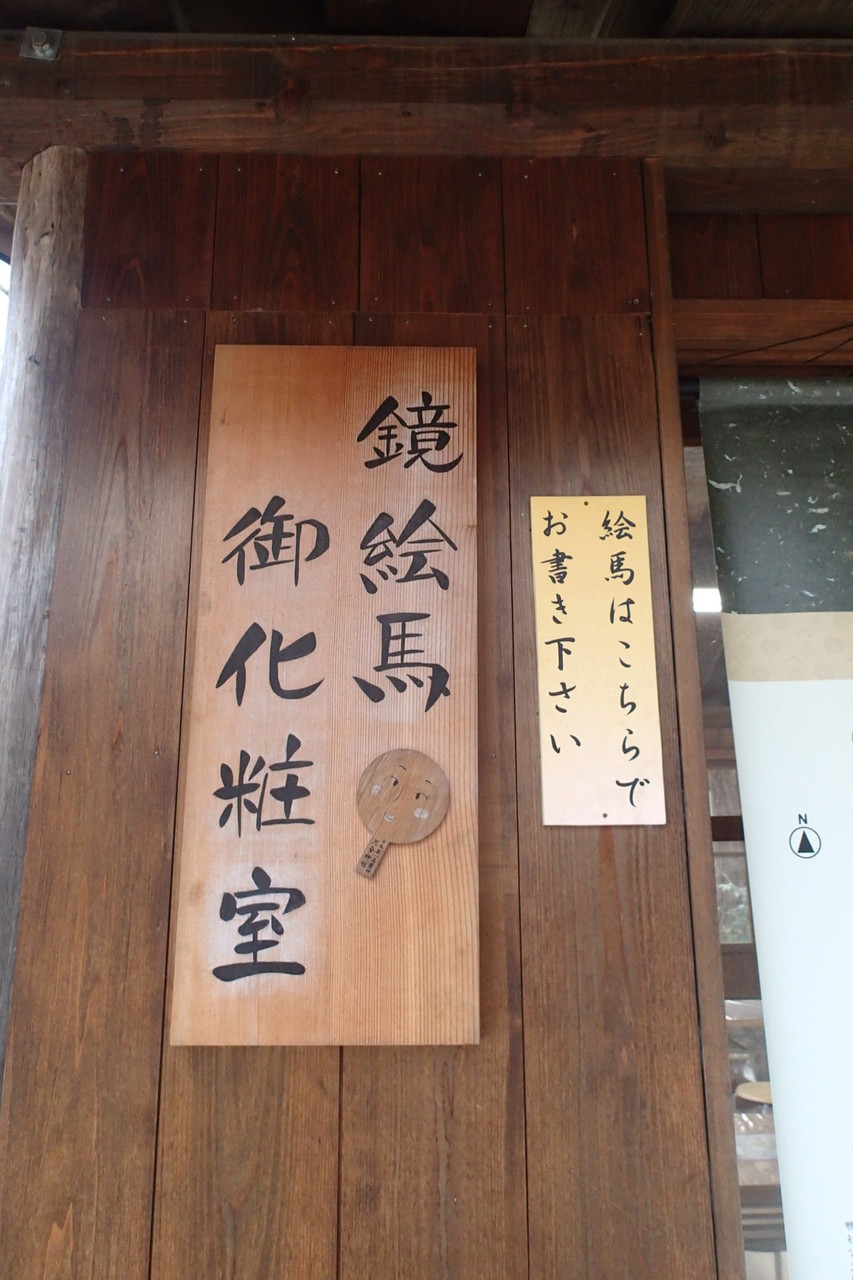 鏡絵馬
御化粧室
絵馬はこちらで
お書き下さい
N